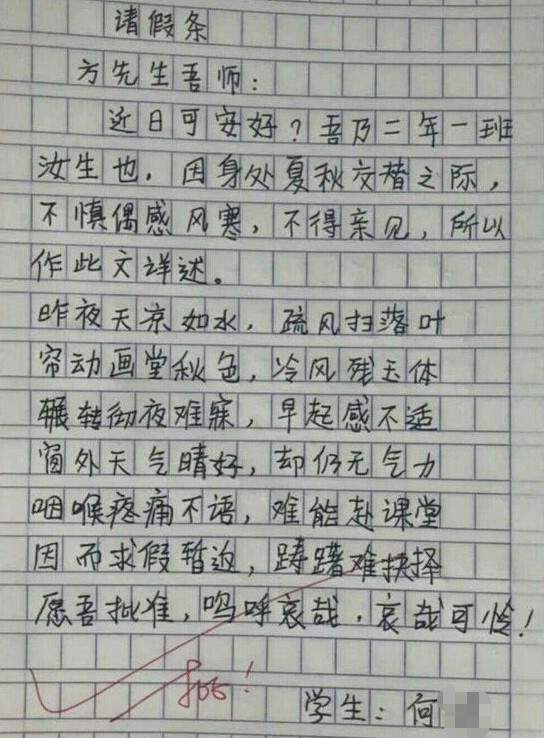 请假条
方先生吾师：
近日可安好？吾乃二年一班
汝生也，因身处夏秋交替之际，
不慎偶感风寒，不得亲见，所以
作此文详述。
昨夜天凉如水，疏风扫落叶
帘动画堂秋色，冷风残玉体
辗转彻夜难寐，早起感不适
窗外天气晴好，却仍无气力
咽喉疼痛不语，难能赴课堂
因而求假暂返，踌躇难抉择
愿吾批准，呜呼哀哉，哀哉可怜！
学生：何